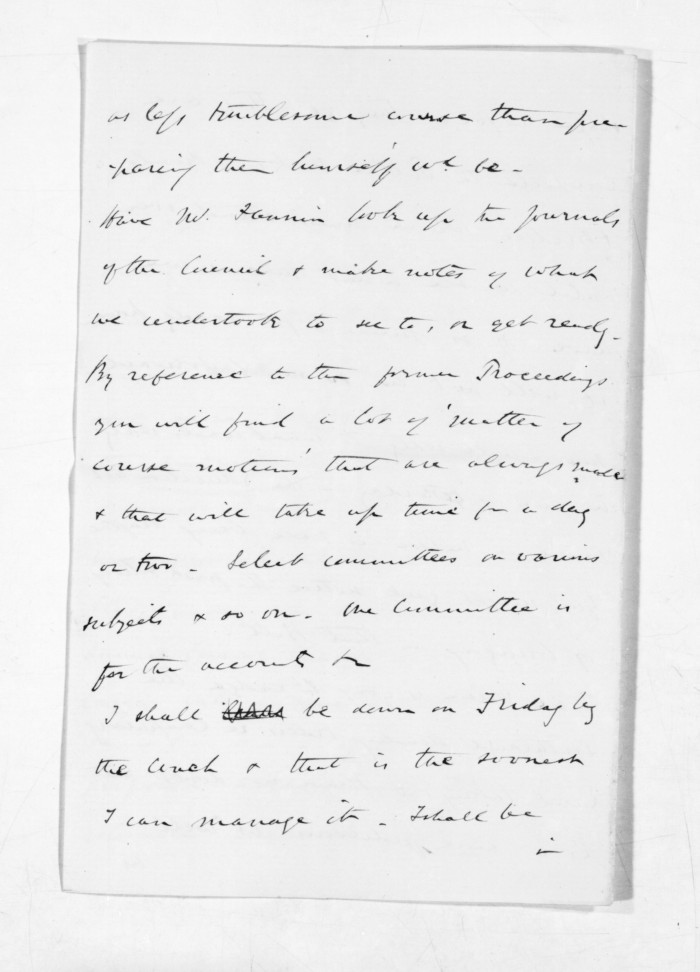 as less troublesome course than pre-
-paring them himself wd. be -
Have Mr. Fannin look up the Journals
of the Council & make notes of what
we undertook to see to, or get ready.
By reference to the former Proceedings
you will find a lot of 'matter of
course motions' that are always made
& that will take up time for a day
or two - Select committees on various
subjects & so on. One Committee is
for the accounts &c
I shall be down on Friday by
the Coach & that is the soonest
I can manage it - I shall be
in